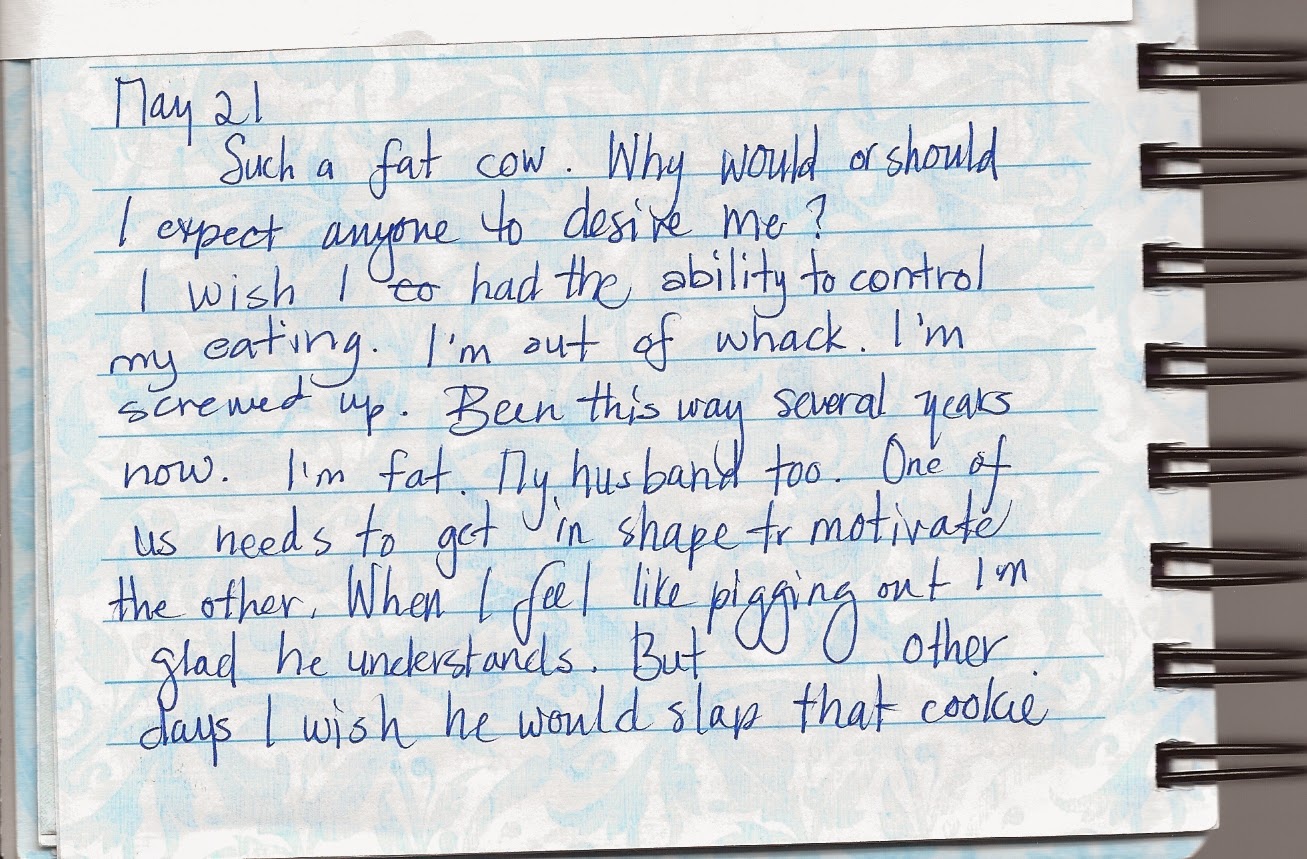 May 21
Such a fat cow. Why would or should
I expect anyone to desire me?
I wish I to had the ability to control
my eating. I'm out of whack. I'm
screwed up. Been this way several years
now. I'm fat. My husband too. One of
us needs to get in shape to motivate
the other. When I feel like pigging out I'm
glad he understands. But other
days I wish he would slap that cookie